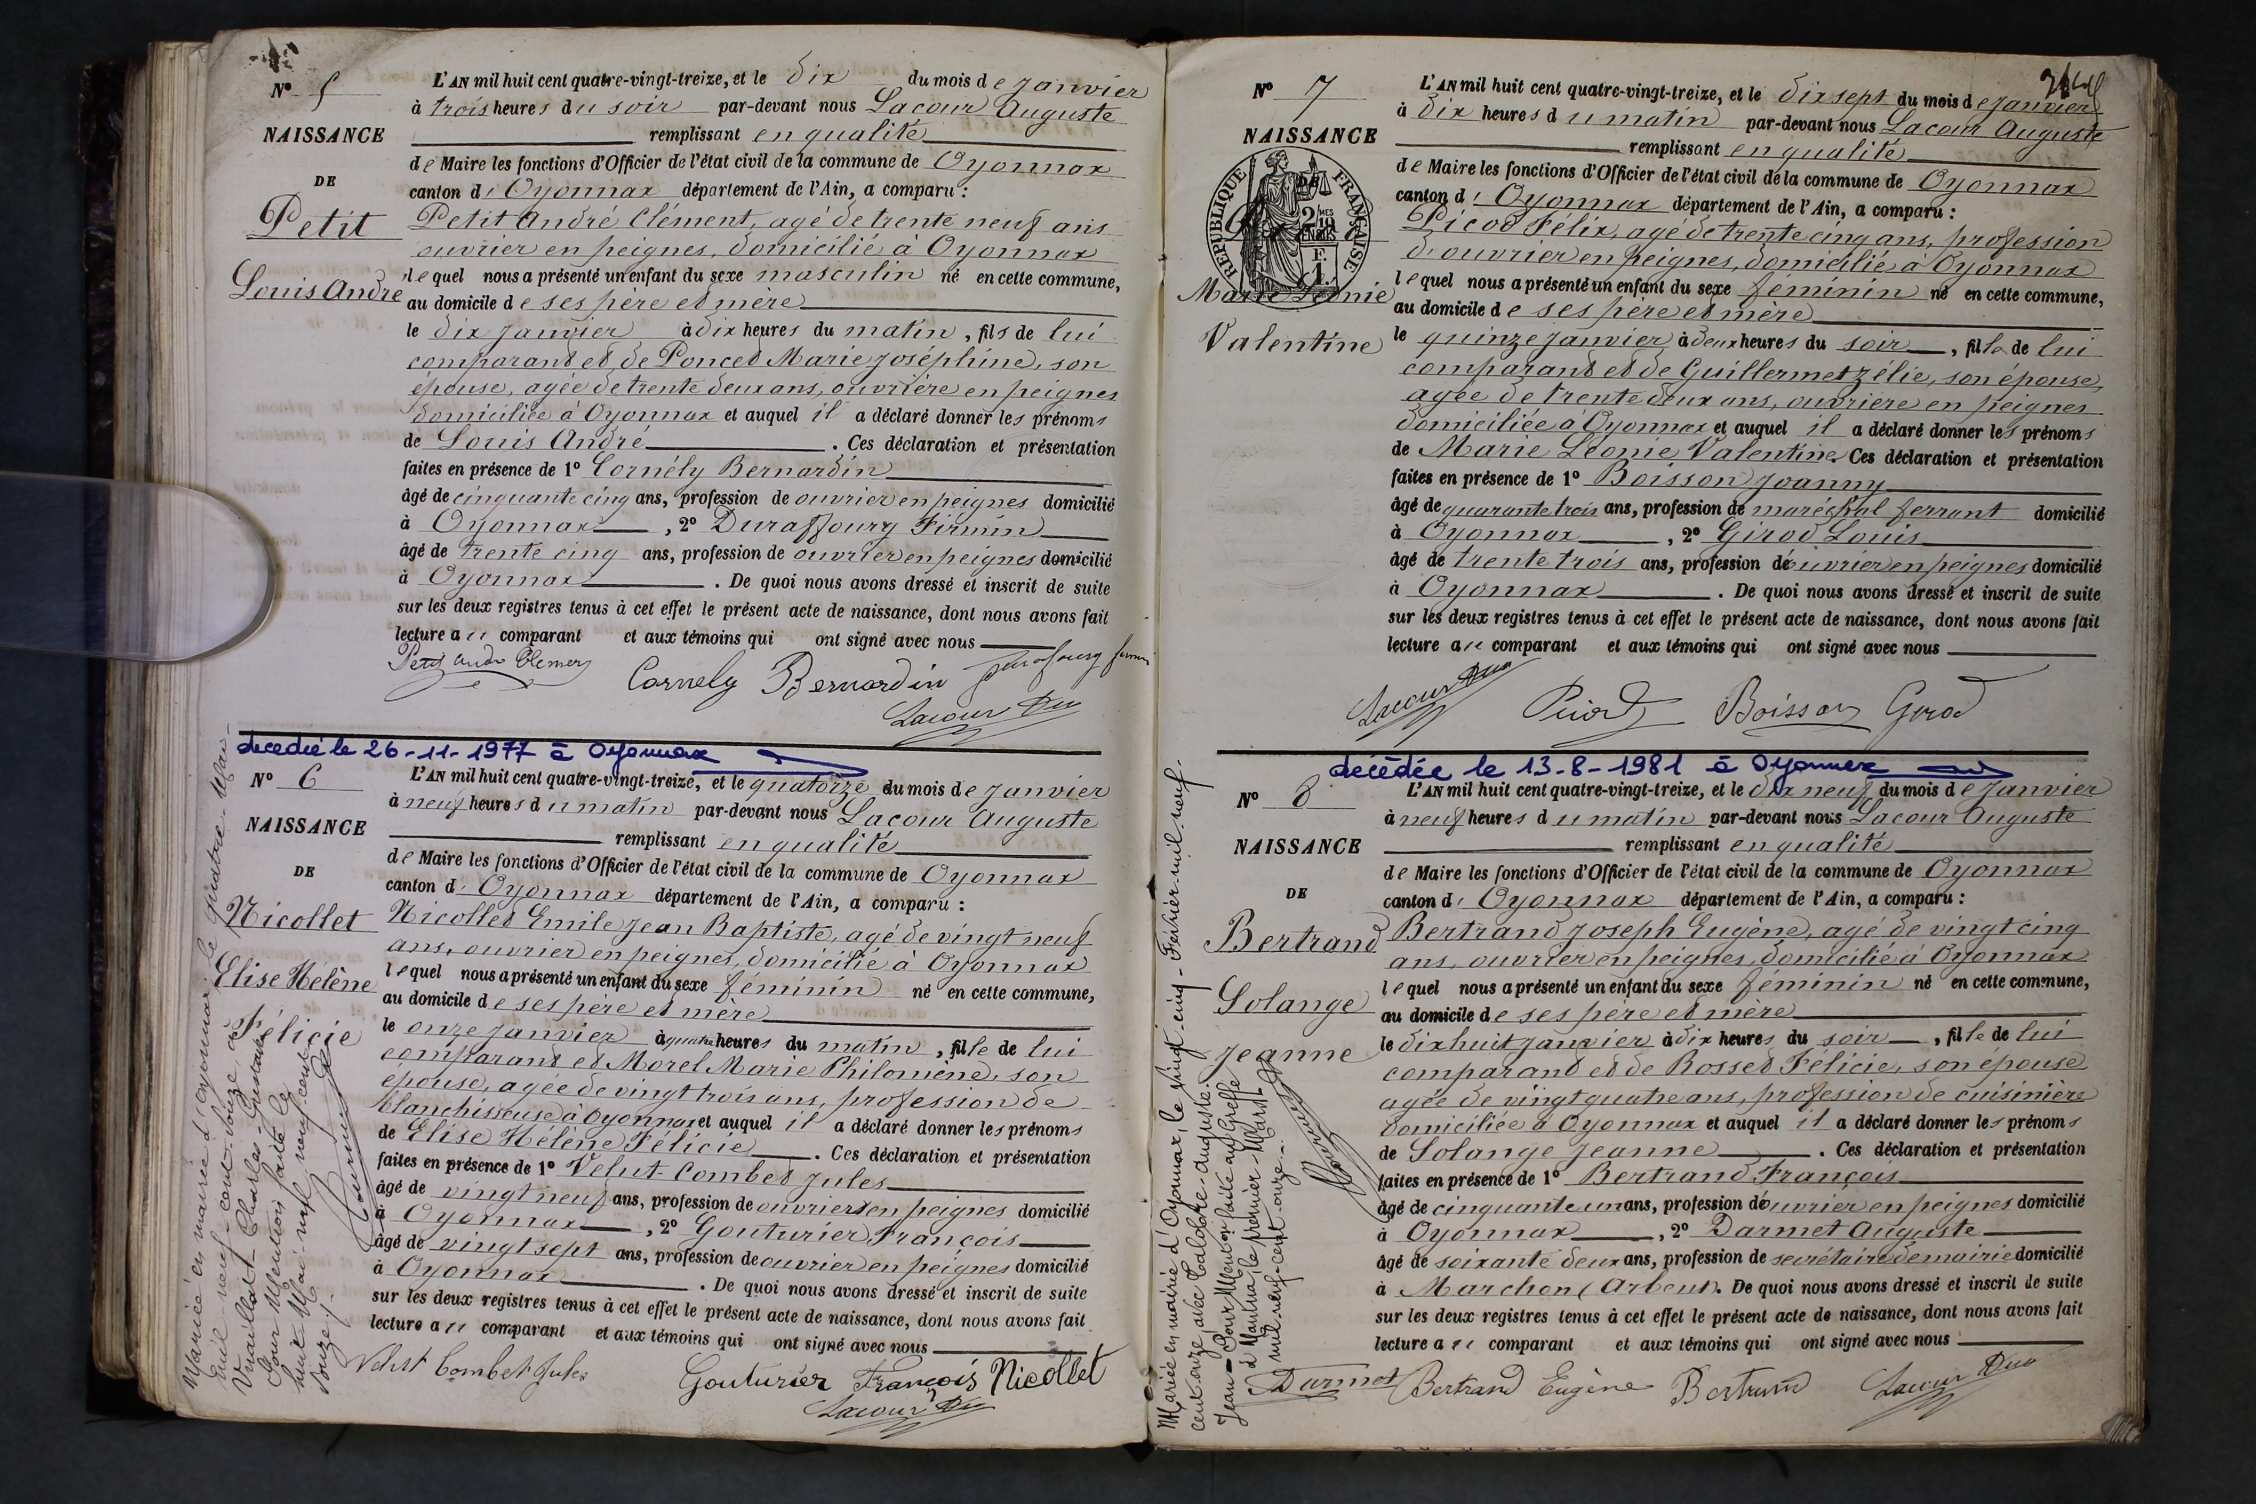 N° 5
NAISSANCE
DE
Petit
Louis André
L'AN mil huit cent quatre-vingt-treize, et le dix du mois de janvier
à trois heures du soir par-devant nous Lacour Auguste
remplissant en qualité
de Maire les fonctions d'Officier de l'état civil de la commune de Oyonnax
canton d'Oyonnax département de l'Ain, a comparu :
Petit André Clément, agé de trente neuf ans
ouvrier en peignes, domicilié à Oyonnax
lequel nous a présenté un enfant du sexe masculin né en cette commune,
au domicile de ses père et mère
le dix janvier à dix heures du matin, fils de lui
comparant et de Poncet Marie Joséphine, son
épouse, agée de trente deux ans, ouvrière en peignes
domiciliée à Oyonnax et auquel il a déclaré donner les prénoms
de Louis André. Ces déclaration et présentation
faites en présence de 1° Cornély Bernardin
âgé de cinquante cinq ans, profession de ouvrier en peignes domicilié
à Oyonnax, 2° Duraffourg Firmin
âgé de trente cinq ans, profession de ouvrier en peignes domicilié
à Oyonnax. De quoi nous avons dressé et inscrit de suite
sur les deux registres tenus à cet effet le présent acte de naissance, dont nous avons fait
lecture au comparant et aux témoins qui ont signé avec nous
Petit andré Clément Cornely Bernardin Duraffourg firmin
Lacour
décédée le 26-11-1977 à Oyonnax
N° 6
NAISSANCE
DE
Nicollet
Elise Hélène
Félicie
L'AN mil huit cent quatre-vingt-treize, et le quatorze du mois de janvier
à neuf heures du matin par-devant nous Lacour Auguste
remplissant en qualité
de Maire les fonctions d'Officier de l'état civil de la commune de Oyonnax
canton d'Oyonnax département de l'Ain, a comparu :
Nicollet Emile Jean Baptiste, agé de vingt neuf
ans, ouvrier en peignes, domicilié à Oyonnax
lequel nous a présenté un enfant du sexe féminin né en cette commune,
au domicile de ses père et mère
le onze janvier à quatre heures du matin, fille de lui
comparant et Morel Marie Philomène, son
épouse, agée de vingt trois ans, profession de
blanchisseuse à Oyonnax et auquel il a déclaré donner les prénoms
de Elise Hélène Félicie. Ces déclaration et présentation
faites en présence de 1° Velut-Combet Jules
âgé de vingt neuf ans, profession de ouvrier en peignes domicilié
à Oyonnax, 2° Gouturier François
âgé de vingt sept ans, profession de ouvrier en peignes domicilié
à Oyonnax. De quoi nous avons dressé et inscrit de suite
sur les deux registres tenus à cet effet le présent acte de naissance, dont nous avons fait
lecture au comparant et aux témoins qui ont signé avec nous
Velut Combet Jules Gouturier François Nicollet
Lacour
Mariée en mairie d'Oyonnax, le quatre Mai
mil-neuf-cent-douze, avec
Vuaillat Charles-Gustave
Pour Mention faite le
huit Mai mil neuf cent
douze
N° 7
NAISSANCE
DE
RÉPUBLIQUE FRANÇAISE
Marie Léonie
Valentine
L'AN mil huit cent quatre-vingt-treize, et le dix sept du mois de janvier
à dix heures du matin par-devant nous Lacour Auguste
remplissant en qualité
de Maire les fonctions d'Officier de l'état civil de la commune de Oyonnax
canton d'Oyonnax département de l'Ain, a comparu :
Picod Félix, agé de trente cinq ans, profession
d'ouvrier en peignes, domicilié à Oyonnax
lequel nous a présenté un enfant du sexe féminin né en cette commune,
au domicile de ses père et mère
le quinze janvier à deux heures du soir, fille de lui
comparant et de Guillermet Zélie, son épouse,
agée de trente deux ans, ouvrière en peignes
domiciliée à Oyonnax et auquel il a déclaré donner les prénoms
de Marie Léonie Valentine. Ces déclaration et présentation
faites en présence de 1° Boisson Joanny
âgé de quarante trois ans, profession de maréchal ferrant domicilié
à Oyonnax, 2° Girod Louis
âgé de trente trois ans, profession de ouvrier en peignes domicilié
à Oyonnax. De quoi nous avons dressé et inscrit de suite
sur les deux registres tenus à cet effet le présent acte de naissance, dont nous avons fait
lecture au comparant et aux témoins qui ont signé avec nous
Lacour Picod Boisson Girod
décédée le 13-8-1981 à Oyonnax
N° 8
NAISSANCE
DE
Bertrand
Solange
Jeanne
L'AN mil huit cent quatre-vingt-treize, et le dix neuf du mois de janvier
à neuf heures du matin par-devant nous Lacour Auguste
remplissant en qualité
de Maire les fonctions d'Officier de l'état civil de la commune de Oyonnax
canton d'Oyonnax département de l'Ain, a comparu :
Bertrand Joseph Eugène, agé de vingt cinq
ans, ouvrier en peignes, domicilié à Oyonnax
lequel nous a présenté un enfant du sexe féminin né en cette commune,
au domicile de ses père et mère
le dix huit janvier à dix heures du soir, fille de lui
comparant et de Rosset Félicie, son épouse
agée de vingt quatre ans, profession de cuisinière
domiciliée à Oyonnax et auquel il a déclaré donner les prénoms
de Solange Jeanne. Ces déclaration et présentation
faites en présence de 1° Bertrand François
âgé de cinquante un ans, profession de ouvrier en peignes domicilié
à Oyonnax, 2° Darmet Auguste
âgé de soixante deux ans, profession de secrétaire de mairie domicilié
à Marchon (Arbent). De quoi nous avons dressé et inscrit de suite
sur les deux registres tenus à cet effet le présent acte de naissance, dont nous avons fait
lecture au comparant et aux témoins qui ont signé avec nous
Darmet Bertrand Eugène Bertrand Lacour
Mariée en mairie d'Oyonnax, le vingt-cinq-Février-mil-neuf-
cent-onze avec Calabre-Auguste
Jean-Pour Mention faite au Greffe
à Nantua, le premier-Mars
mil-neuf-cent-onze